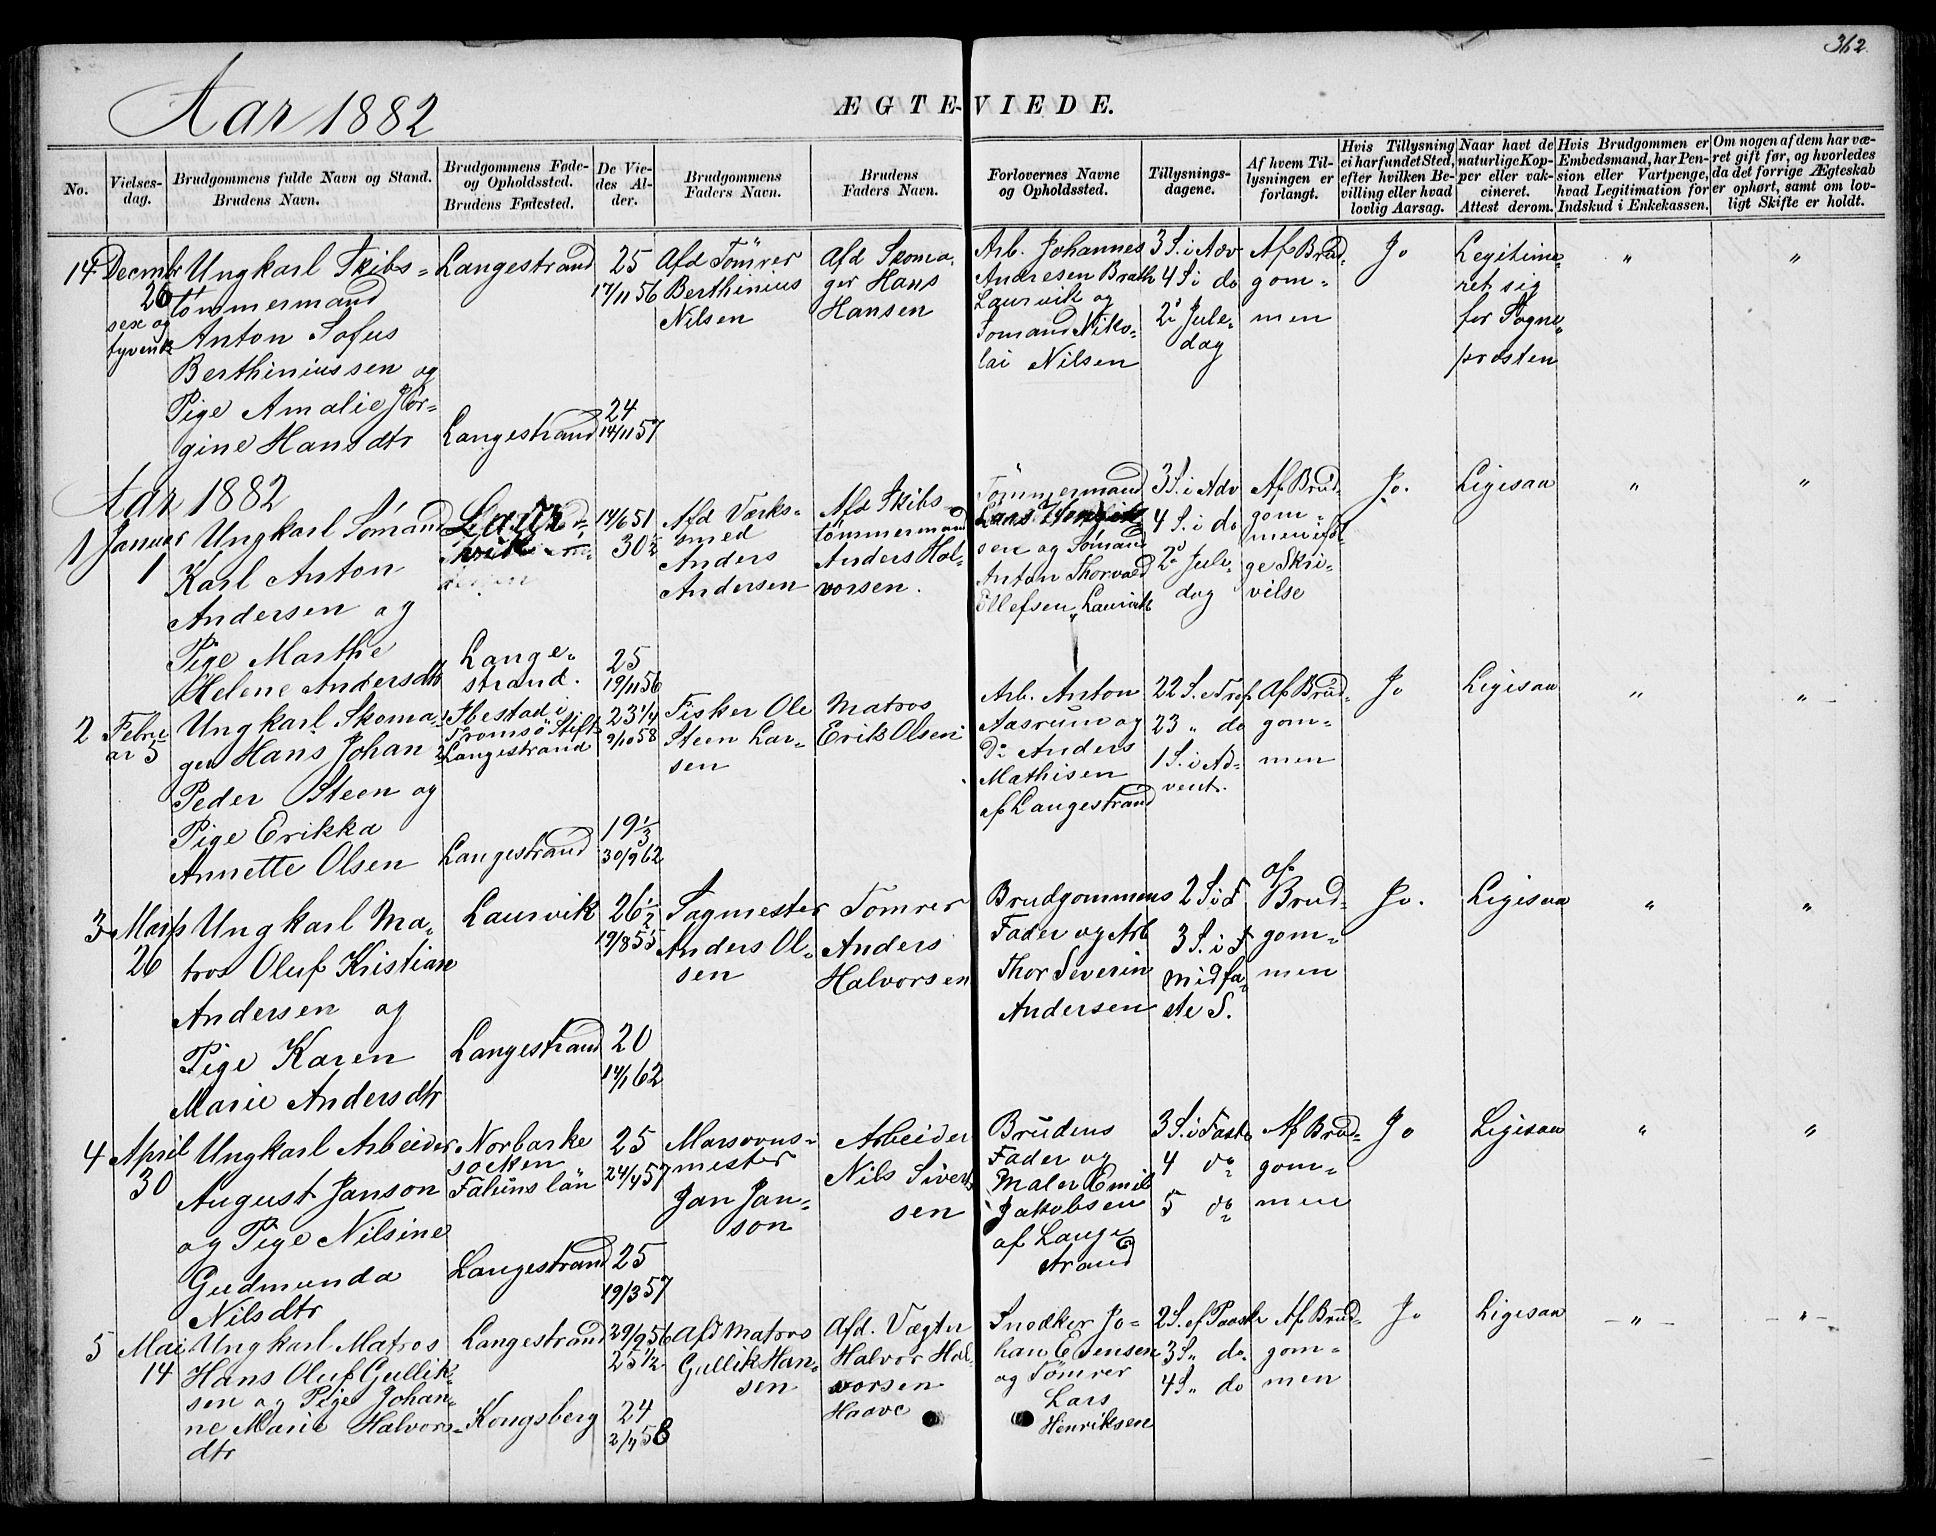 362
Aar 1882
ÆGTE-VIEDE.
No.
Vielses-
dag.
Brudgommens fulde Navn og Stand.
Brudens Navn.
Brudgommens Føde-
og Opholdssted.
Brudens Fødested.
De Vie-
des Al-
der.
Brudgommens
Faders Navn.
Brudens
Faders Navn.
Forlovernes Navne
og Opholdssted.
Tillysnings-
dagene.
Af hvem Til-
lysningen er
forlangt.
Hvis Tillysning
ei har fundet Sted,
efter hvilken Be-
villing eller hvad
lovlig Aarsag.
Naar havt de
naturlige Kop-
per eller vak-
cineret.
Attest derom.
Hvis Brudgommen er
Embedsmand, har Pen-
sion eller Vartpenge,
hvad Legitimation for
Indskud i Enkekassen.
Om nogen af dem har væ-
ret gift før, og hvorledes
da det forrige Ægteskab
er ophørt, samt om lov-
ligt Skifte er holdt.
14
Decmbr
26
sex og
tyvende
Ungkarl Skibs-
tømmermand
Anton Sofus
Berthiniussen og
Pige Amalie Jør-
gine Hansdtr
Langestrand
Langestrand
25
17/11 56
24
14/11 57
Afd Tömrer
Berthinius
Nilsen
Afd Skoma-
ger Hans
Hansen
Arb. Johannes
Andresen Brath
Laurvik og
Sømand Niko-
lai Nilsen
3 S. i Adv
4 S. i do
2 Jule-
dag
Af Brud-
gom-
men
Jo
Legitime-
ret sig
for Sogne-
presten
"
"
Aar 1882
1
Januar
1
Ungkarl Sømand
Karl Anton
Andersen og
Pige Marthe
Helene Andersdtr
Laur-
vik
Lange-
strand.
14/6 51
30 1/2
25
19/11 56
Afd Værks-
smed
Anders
Andersen
Afd Skibs-
tømmermand
Anders Hal-
vorsen.
Tömmermand
Lars Henrik-
sen og Sømand
Anton Thorvald
Ellefsen, Laurvik
3 S. i Adv
4 S. i do
2 Jule-
dag
Af Brud-
gom-
men iføl-
ge Skri-
velse
Jo.
Ligesaa
"
"
2
Febru-
ar 5
Ungkarl Skoma-
ger Hans Johan
Peder Steen og
Pige Erikka
Annette Olsen
1 Ibestad i
Tromsö Stift
2 Langestrand
Langestrand
23 1/4
9/10 58
19 1/3
30/9 62
Fisker Ole
Steen Lar-
sen
Matros
Erik Olsen
Arb. Anton
Aasrum og
Do Anders
Mathisen
af Langestrand
22 S. e Tref
23 " do
1 S. i Ad-
vent.
Af Brud-
gom-
men
Jo
Ligesaa
"
"
3
Marts
26
Ungkarl Ma-
tros Oluf Kristian
Andersen og
Pige Karen
Marie Andersdtr
Laurvik
Langestrand
26 1/2
19/8 55
20
14/1 62
Sagmester
Anders Ol-
sen
Tomrer
Anders
Halvorsen
Brudgommens
Fader og Arb
Thor Severin
Andersen
2 S i F
3 S. i F
midfa-
ste S.
af
Brud-
gom-
men
Jo.
Ligesaa
"
"
4
April
30
Ungkarl Arbeider
August Janson
og Pige Nilsine
Gudmunda
Nilsdtr
Norbarke
socken
Faluns län
Langestrand
25
24/4 57
25
19/3 57
Masovns-
mester
Jan Jan-
son
Arbeider
Nils Sivert-
sen
Brudens
Fader og
Maler Emil
Jakobsen
af Lange
strand
3 S. i Faste
4 do
5 do
Af Brud-
gom-
men
Jo
Ligesaa
"
"
5
Mai
14
Ungkarl Matros
Hans Oluf Gullik-
sen og Pige Johan-
ne Marie Halvors-
dtr
Langestrand
Kongsberg
29/9 56
25 1/2
24
2/4 58
Afd Matros
Gullik Han-
sen
Afd. Vægter
Halvor Hal-
vorsen
Haave
Snedker Jo-
han Evensen
og Tömrer
Lars
Henriksen
2 S. ef Paaske
3 S " do
4 S " do
Af Brud-
gom-
men
Jo
Ligesaa
- " -
- " -